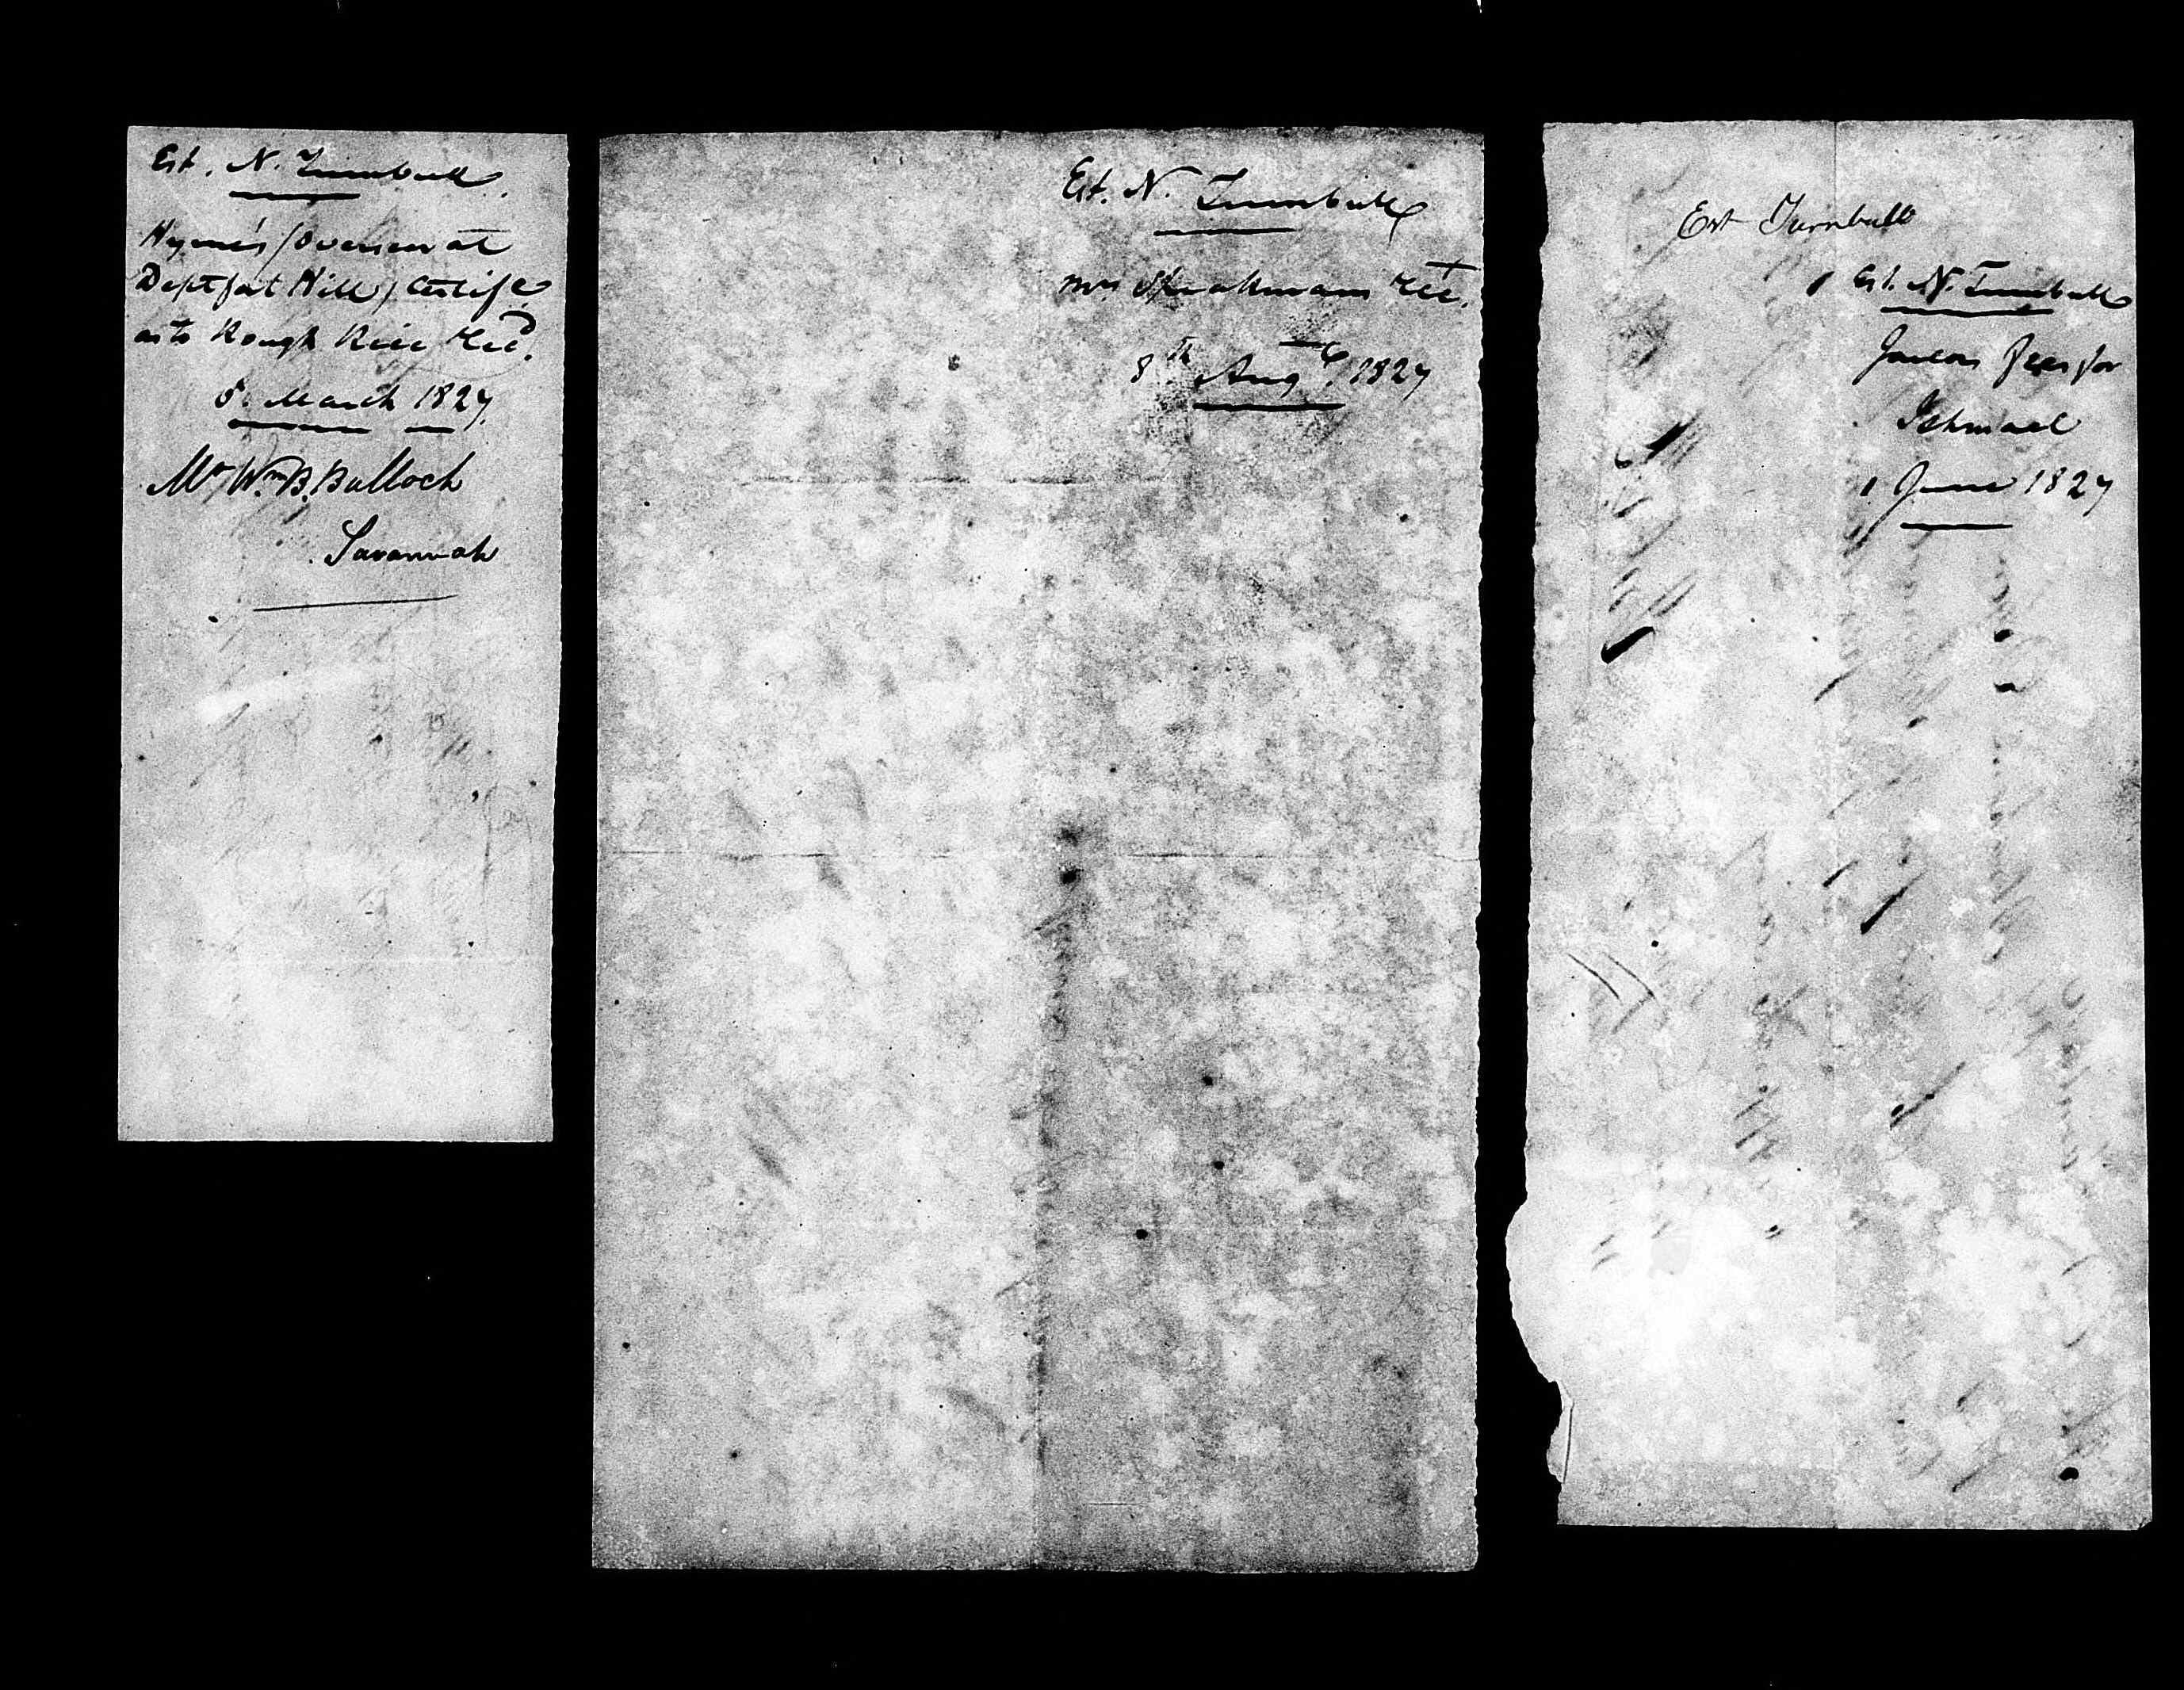 Est. N. Turnbull.
Hyme's (Overseer at
Deptfort Hill) Certife
as to Rough Rice Recd.
5. March 1827.
Mr Wm B. Bulloch
Savannah
Est. N. Turnbull
Mrs Speakmans Rect.
8th Augt. 1827
Est Turnbull
Est. N. Turnbull
Jailors fees for
Ishmael
1 June 1827